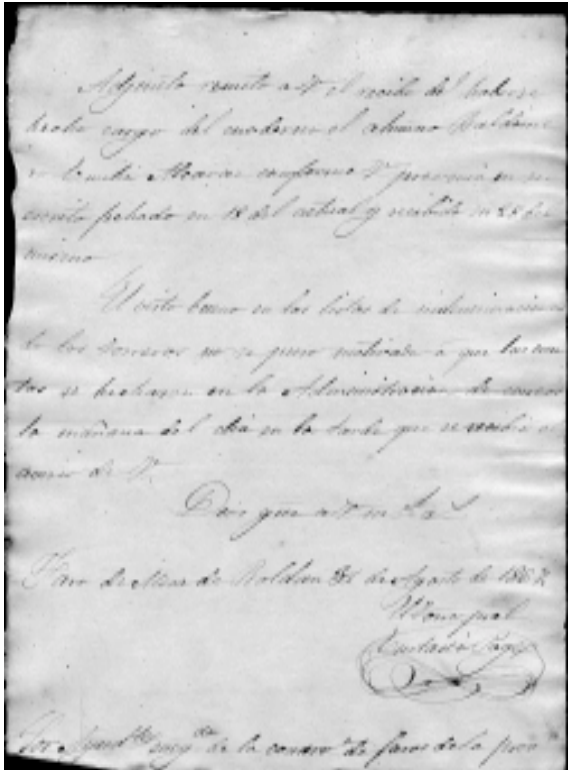 Adjunto remito a V el recibo del haberse
hecho cargo del cuaderno el alumno
conforme V prevenia en su
escrito fechado en 18 del actual y recibido en 28 del
mismo
El visto bueno en las listas de indemnizacion
de los torreros no se puso motivado á que las
se hecharon en la Administracion de correos
la mañana del dia en la tarde que se recibió el
de V.
Dios gue a V m a
Faro de Mesa de Roldan de Agosto de 186
El Torre pral
Sor Ayud te encg do de la conserv n de faros de la prov a